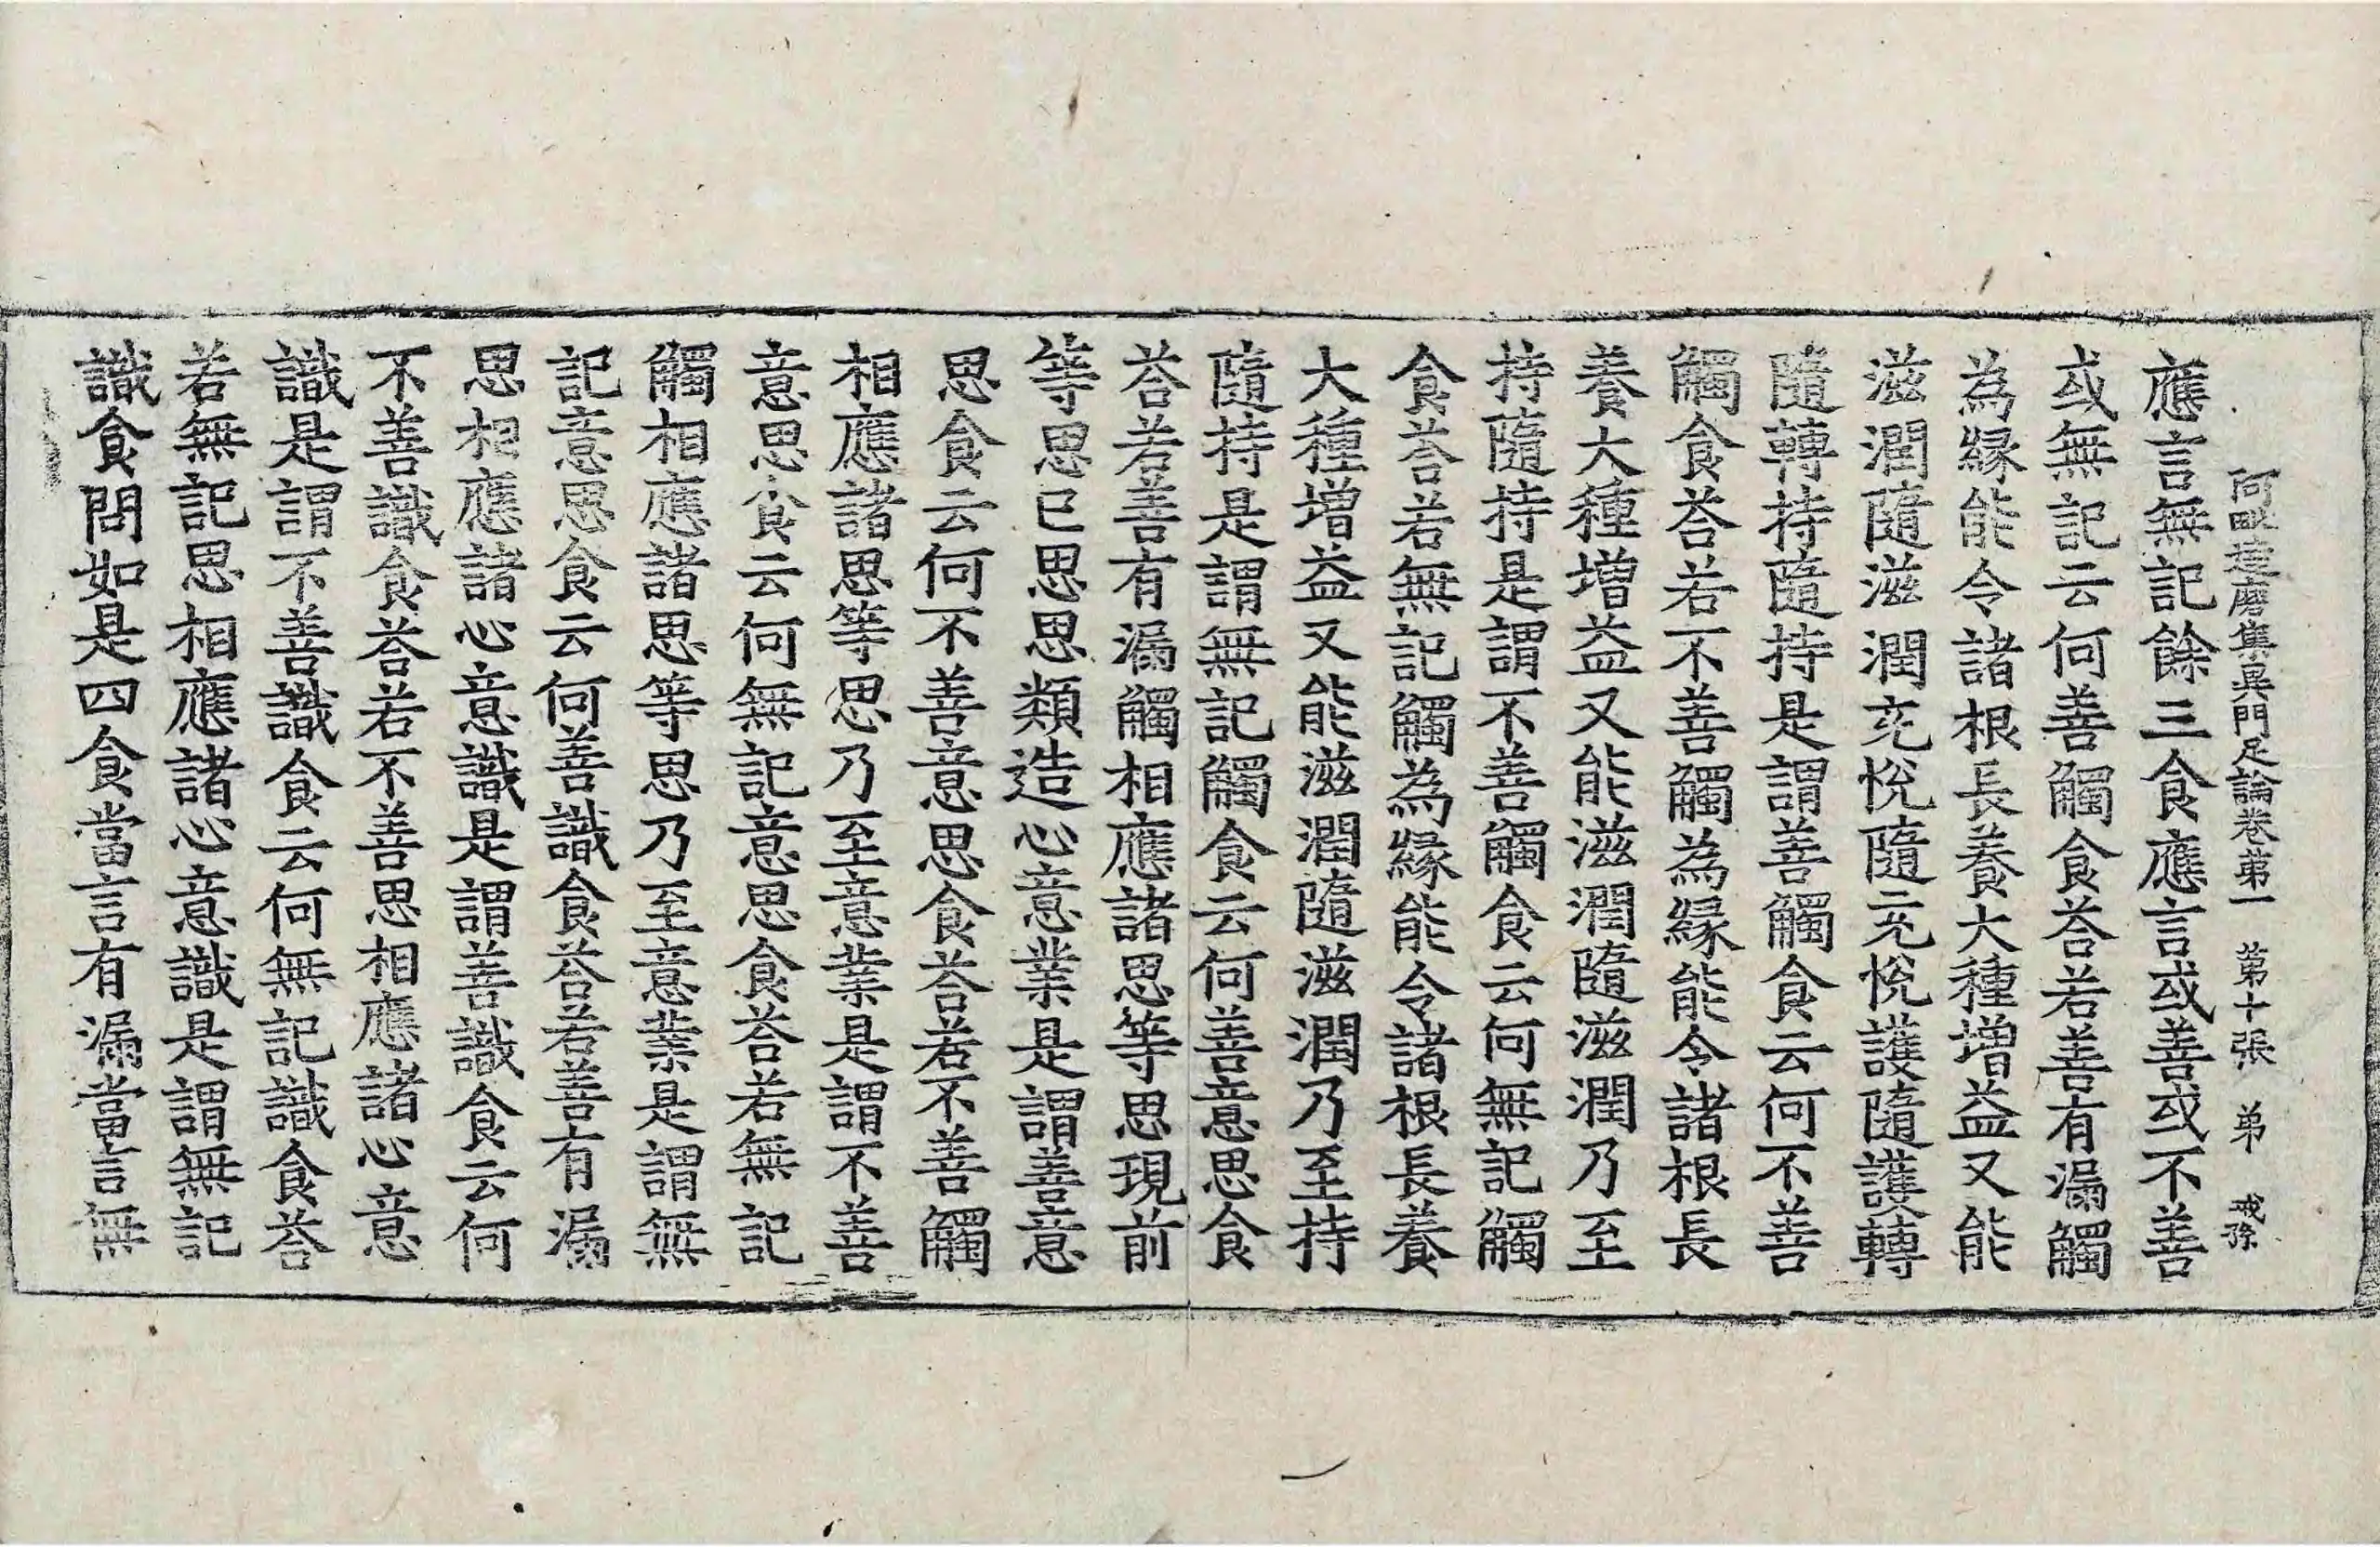 阿毗達磨集異門足論卷第一　第十張　弟　戒孫
應言無記餘三食應言或善或不善
或無記云何善觸食荅若善有漏觸
為緣能令諸根長養大種增益又能
滋潤隨滋潤充悅隨充悅護隨護轉
隨轉持隨持是謂善觸食云何不善
觸食荅若不善觸為緣能令諸根長
養大種增益又能滋潤隨滋潤乃至
持隨持是謂不善觸食云何無記觸
食荅若無記觸為緣能令諸根長養
大種增益又能滋潤隨滋潤乃至持
隨持是謂無記觸食云何善意思食
荅若善有漏觸相應諸思等思現前
等思已思思類造心意業是謂善意
思食云何不善意思食荅若不善觸
相應諸思等思乃至意業是謂不善
意思食云何無記意思食荅若無記
觸相應諸思等思乃至意業是謂無
記意思食云何善識食荅若善有漏
思相應諸心意識是謂善識食云何
不善識食荅若不善思相應諸心意
識是謂不善識食云何無記識食荅
若無記思相應諸心意識是謂無記
識食問如是四食當言有漏當言無